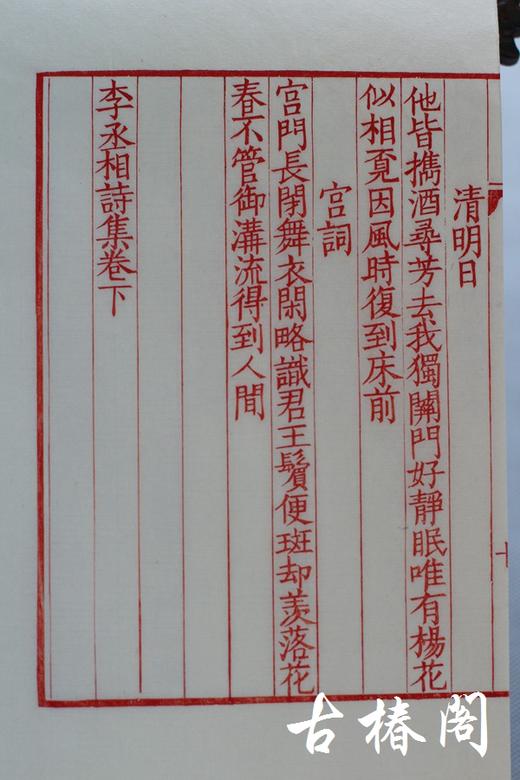 清明日
他皆攜酒尋芳去我獨關門好靜眠唯有楊花
似相覔因風時復到床前
宫詞
宫門長閉舞衣閑略識君王鬢便斑却羨落花
春不管御溝流得到人間
李丞相詩集卷下
古椿閣